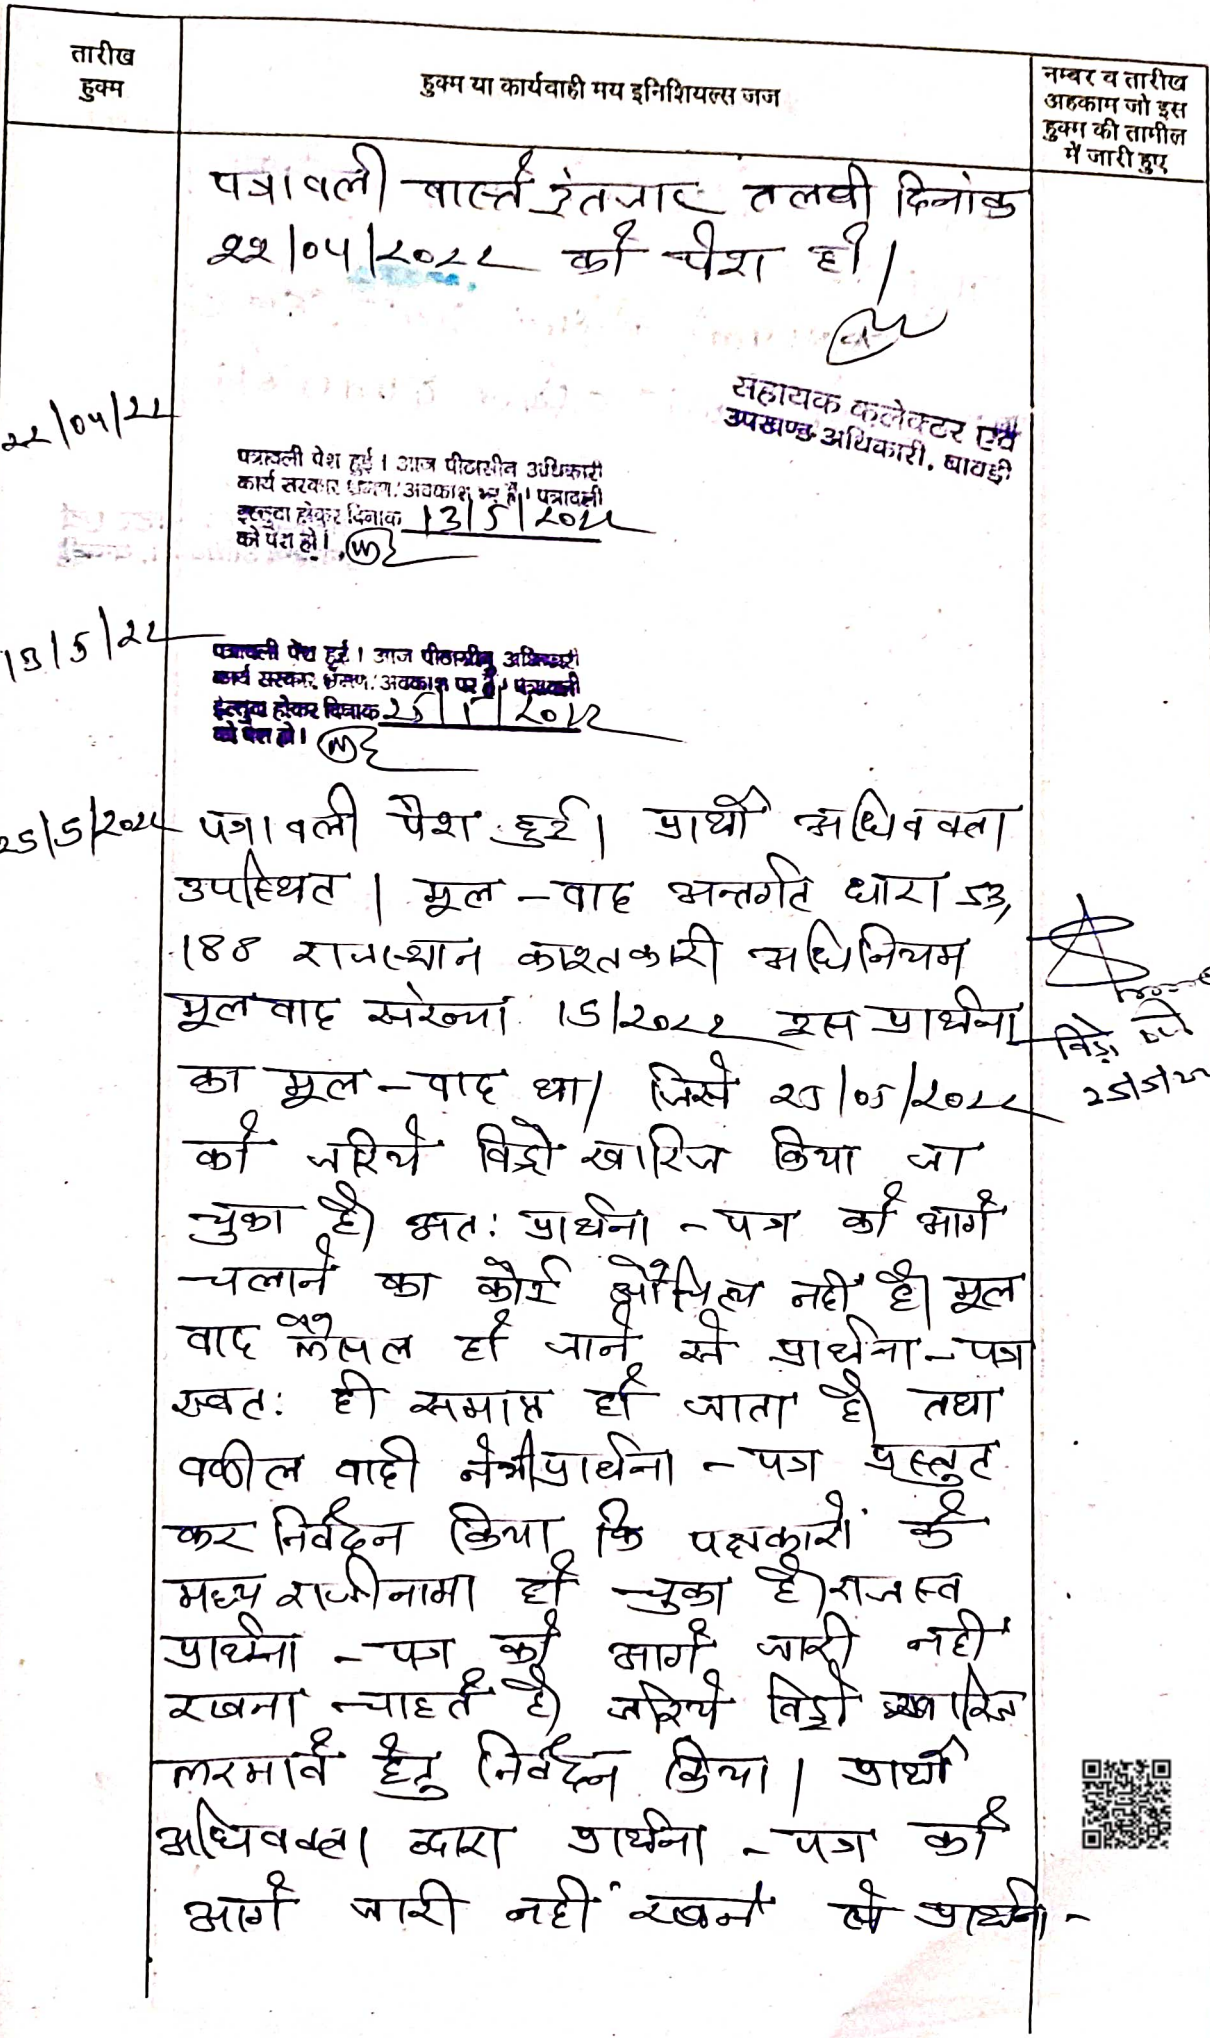 तारीख
हुक्म
हुक्म या कार्यवाही मय इनिशियल्स जज
नम्बर व तारीख
अहकाम जो इस
हुक्म की तामील
में जारी हुए
पत्रावली वास्ते इंतजार तलबी दिनांक
22/04/2022 को पेश हो।
सहायक कलेक्टर एवं
उपखण्ड अधिकारी, बावड़ी
22/04/22
पत्रावली पेश हुई। आज पीठासीन अधिकारी
कार्य सरकार भ्रमण/अवकाश पर है। पत्रावली
इस्तुवा होकर दिनांक 13/5/2022
को पेश हो।
13/5/22
पत्रावली पेश हुई। आज पीठासीन अधिकारी
कार्य सरकार भ्रमण/अवकाश पर है। पत्रावली
इस्तुवा होकर दिनांक 25/5/2022
को पेश हो।
25/5/2022 पत्रावली पेश हुई। प्रार्थी अधिवक्ता
उपस्थित। मूल-वाद अन्तर्गत धारा 53,
188 राजस्थान काश्तकारी अधिनियम
मूल वाद संख्या 15/2022 इस प्रार्थना
का मूल-वाद था। जिसे 25/05/2022
को जरिये विड्रो खारिज किया जा
चुका है। अतः प्रार्थना-पत्र को आगे
चलाने का कोई औचित्य नहीं है। मूल
वाद फैसल हो जाने से प्रार्थना-पत्र
स्वतः ही समाप्त हो जाता है। तथा
वकील वादी ने भी प्रार्थना-पत्र प्रस्तुत
कर निवेदन किया कि पक्षकारों के
मध्य राजीनामा हो चुका है। राजस्व
प्रार्थना-पत्र को आगे जारी नहीं
रखना चाहते है। जरिये विड्रो खारिज
फरमाने हेतु निवेदन किया। प्रार्थी
अधिवक्ता द्वारा प्रार्थना-पत्र को
आगे जारी नहीं रखने से प्रार्थना-
विड्रो
25/5/22